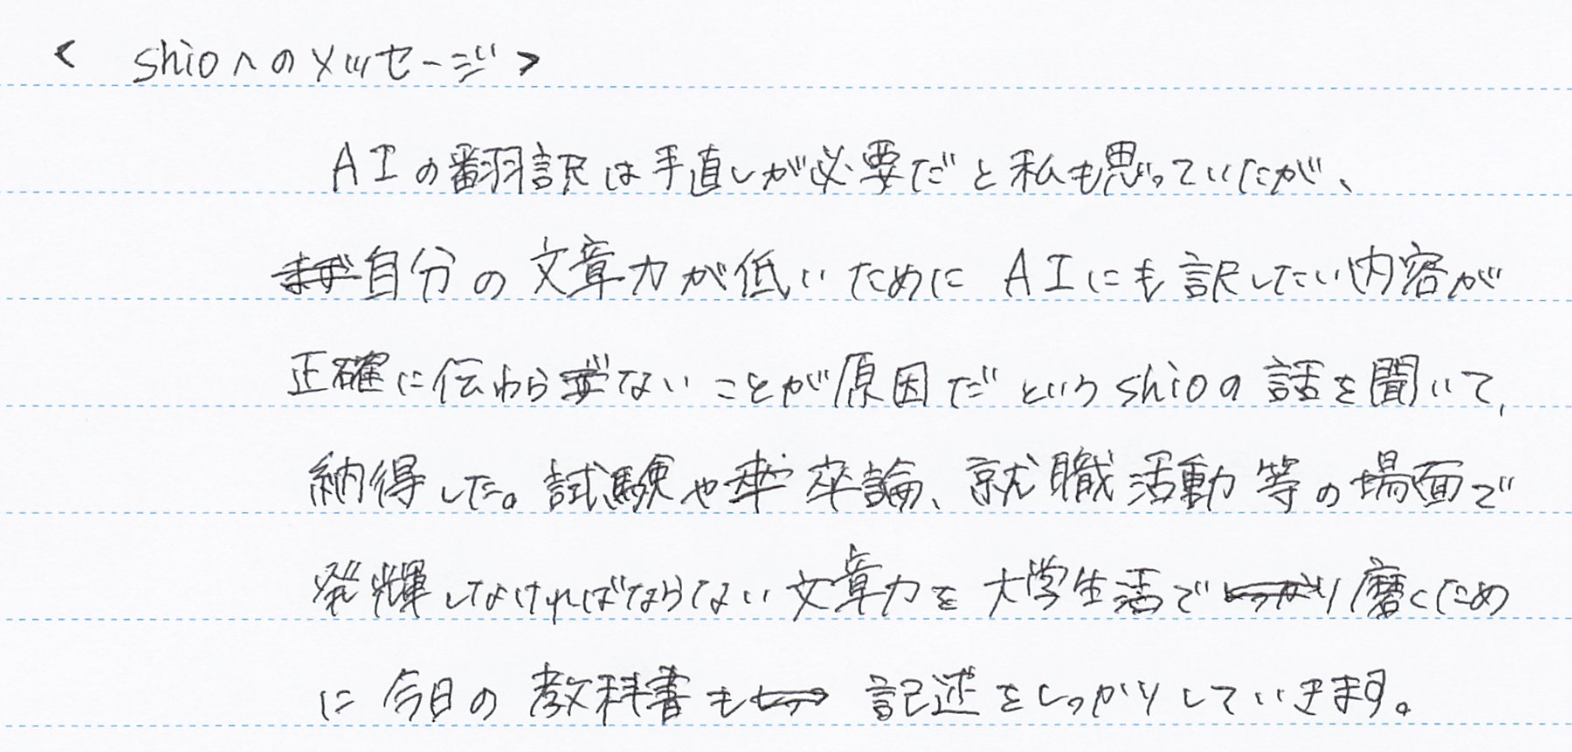 < shioへのメッセージ>
AIの翻訳は手直しが必要だと私も思っていたが、
自分の文章力が低いためにAIにも訳したい内容が
正確に伝わらないことが原因だというshioの話を聞いて、
納得した。試験や卒論、就職活動等の場面で
発揮しなければならない文章力を大学生活で磨くため
に今日の教科書も記述をしっかりしていきます。